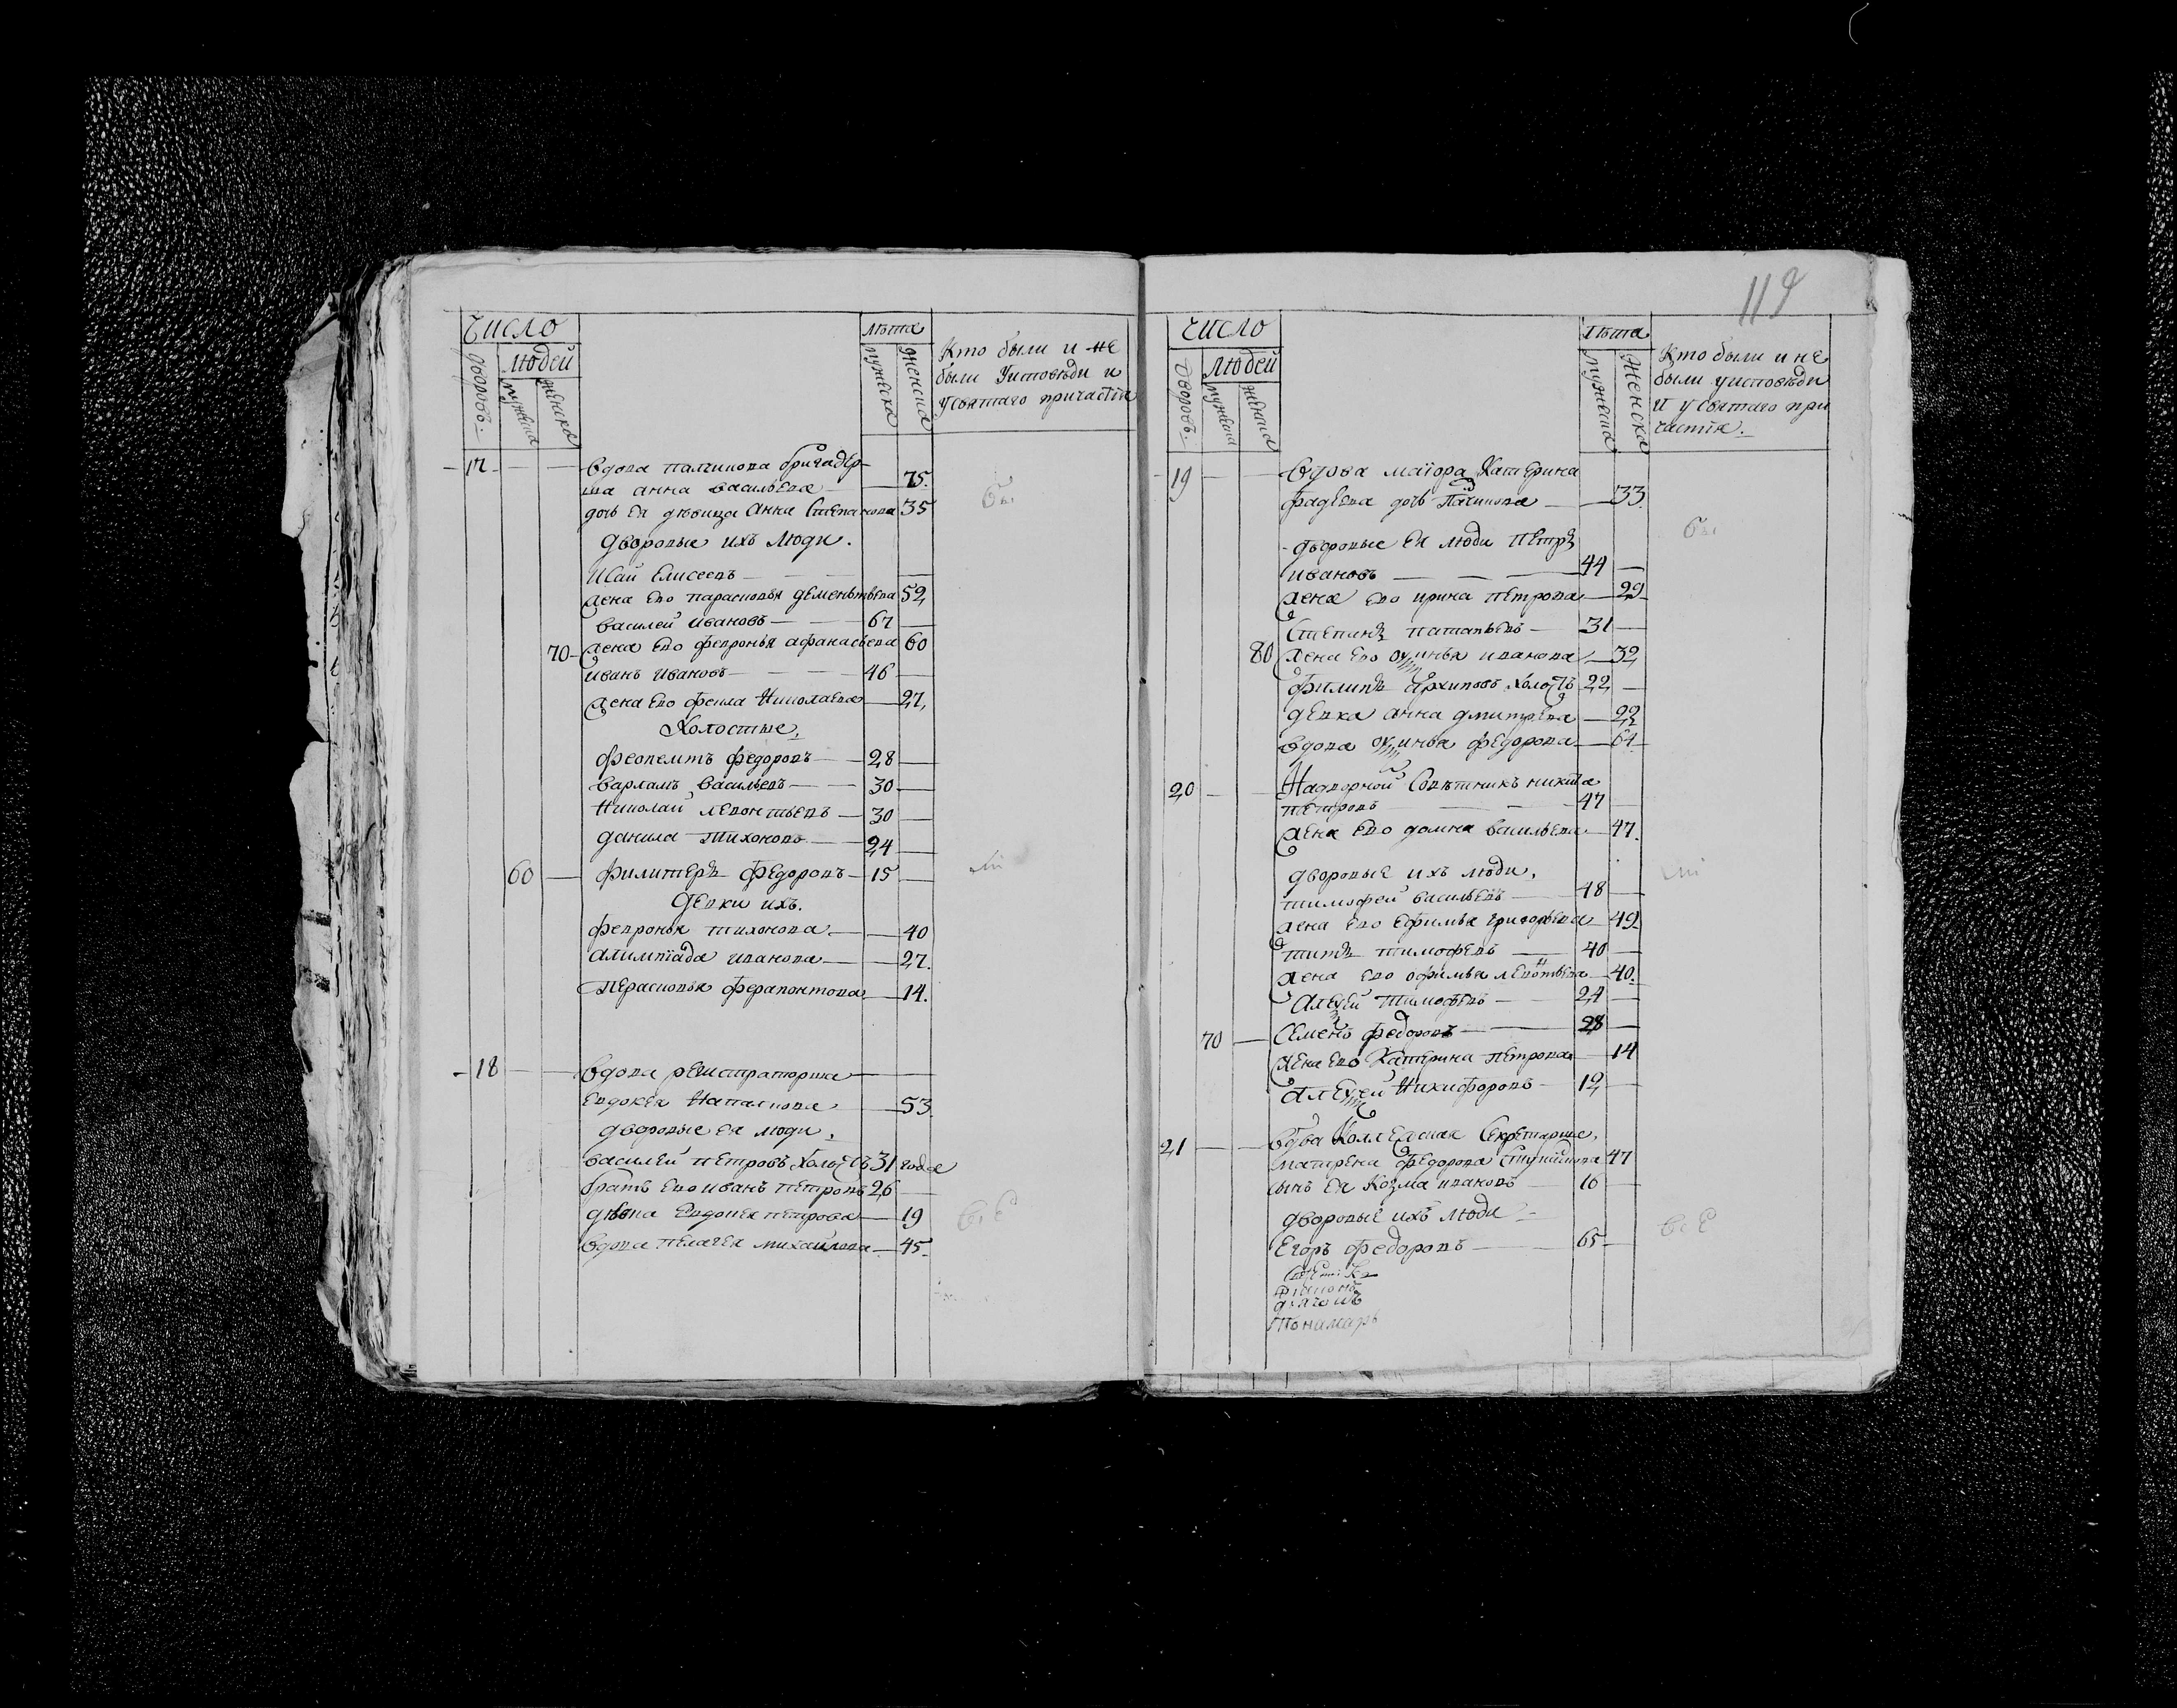 Число
людей
Дворовъ.
мужеска
женска
лѣта
мужеска
женска
Кто были и не
были у исповѣди и
у святаго причастія
17
вдова бригадер-
ша анна васильева 75.
дочь ея дѣвица Анна Степанова 35
дворовые ихъ люди.
Исай Елисеевъ
жена ево парасковья дементьева 52
василей ивановъ 67
70 жена ево февронья афанасьева 60
иванъ ивановъ 46
жена ево фекла Николаева 27
Холостые.
феопемтъ федоровъ 28
варламъ васильевъ 30
Николай левонтьевъ 30
данила тихоновъ 24
60 филитеръ федоровъ 15
Девки ихъ.
февронья тихонова 40
алимпіада иванова 27.
Перасковья ферапонтова 14.
18 вдова регистраторша
Евдокея 53
дворовые ея люди.
василей петровъ холостъ 31 года
братъ ево иванъ петровъ 26
дѣвка Евдокея петрова 19
вдова пелагея михайлова 45.
все
119
Число
людей
Дворовъ.
мужеска
женска
лѣта
мужеска
Женска
Кто были и не
были у исповѣди
и у святаго при
частія.
19 вдова маіора Катерина
фадѣева дочь 33.
дворовые ея люди Петръ
ивановъ 44
жена ево ирина петрова 29
Степанъ патапьевъ 31
80 жена ево иванова 32
филипъ Архиповъ холостъ 22
девка анна дмитрева 22
вдова федорова 61
20 Надворной Совѣтникъ никита
петровъ 47
жена ево домна васильева 47.
дворовые ихъ люди.
тимофей васильевъ 48
жена ево Ефимья григорьева 49
титъ тимофевъ 40
жена ево офимья левонтьева 40.
Алексей тимофевъ 24
70 Семенъ федоровъ 28
жена ево Катерина петрова 14
Алексей Никифоровъ 12
21 вдова Коллежская Секретарша,
матрена федорова 47
сынъ ея Козма ивановъ 16
дворовые ихъ люди
Егоръ федоровъ 65
все
дьячокъ
Пономарь